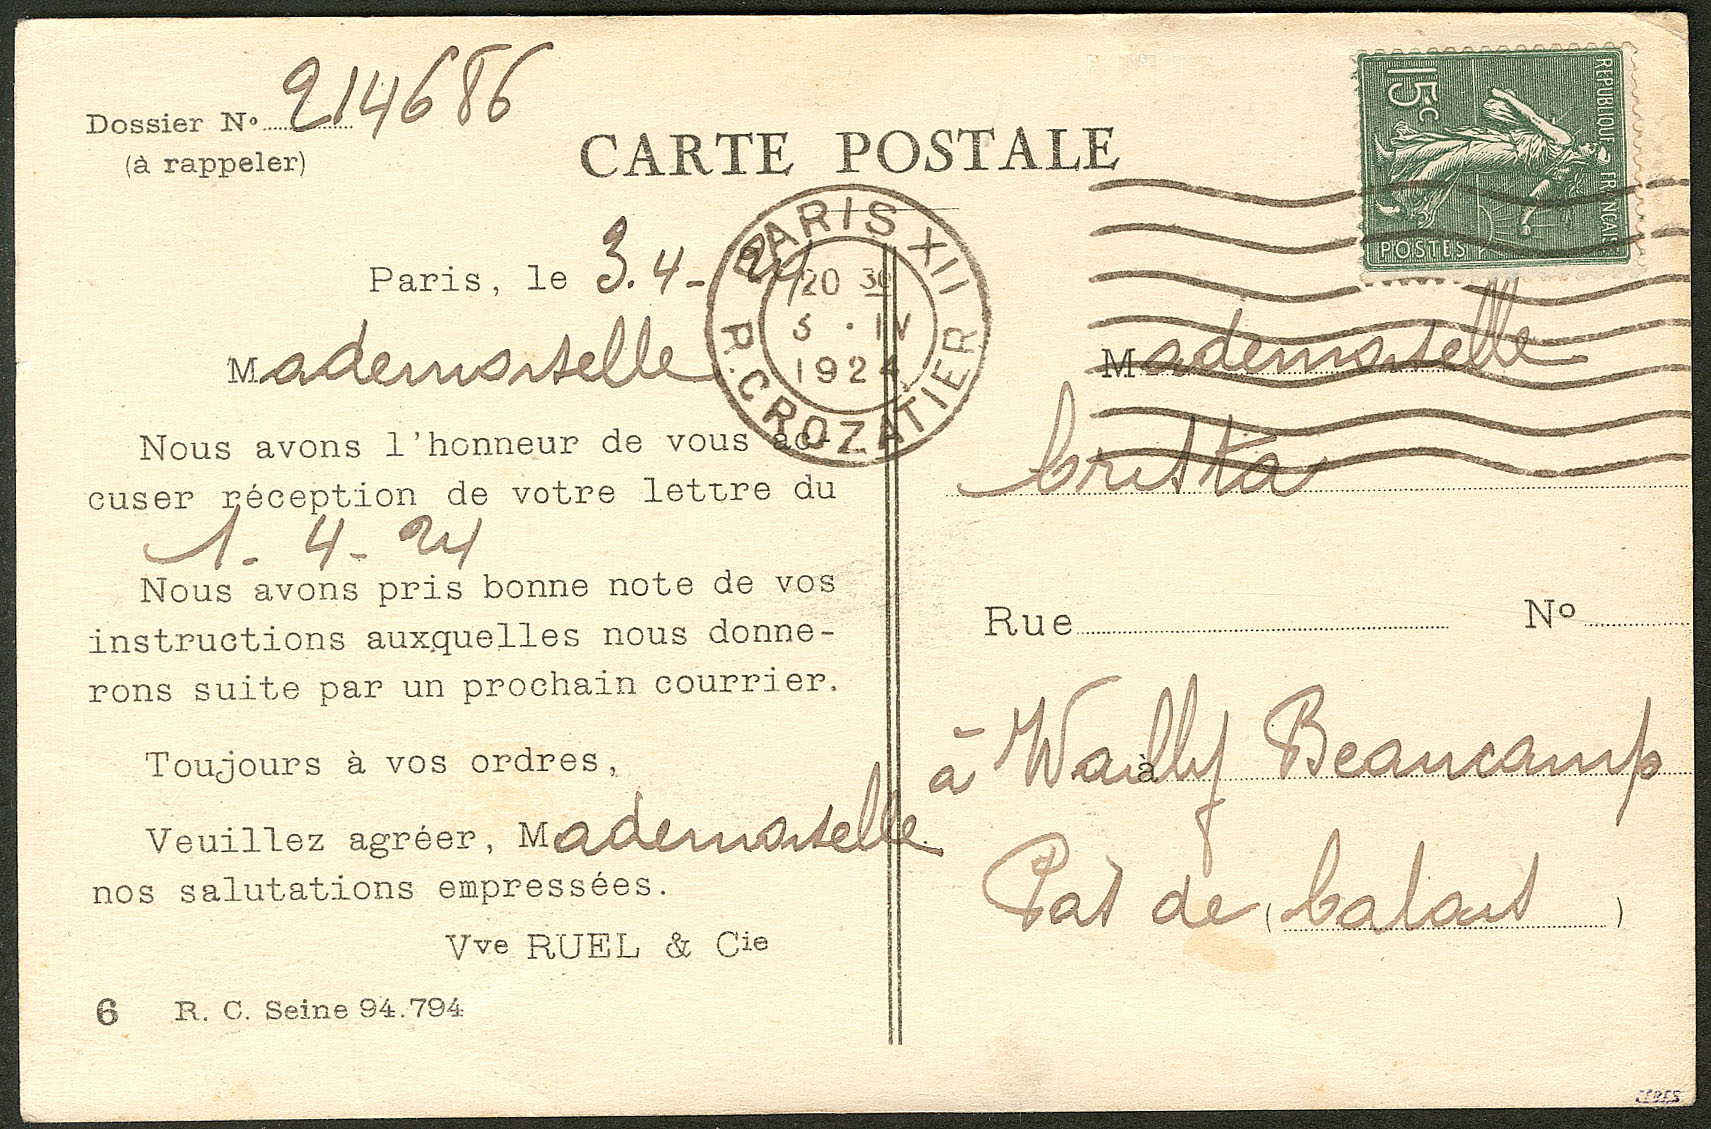 Dossier Nº 214686
(à rappeler)
CARTE POSTALE
RÉPUBLIQUE FRANÇAISE
15c
POSTES
PARIS XII
20 30
5 · IV
1924
R. CROZATIER
Paris, le 3.4-24
Mademoiselle
Nous avons l'honneur de vous ac-
cuser réception de votre lettre du
1-4-24
Nous avons pris bonne note de vos
instructions auxquelles nous donne-
rons suite par un prochain courrier.
Toujours à vos ordres,
Veuillez agréer, Mademoiselle
nos salutations empressées.
Vve RUEL & Cie
6 R. C. Seine 94.794
Mademoiselle
Rue Nº
à à Wailly Beaucamp
Pas de (Calais)